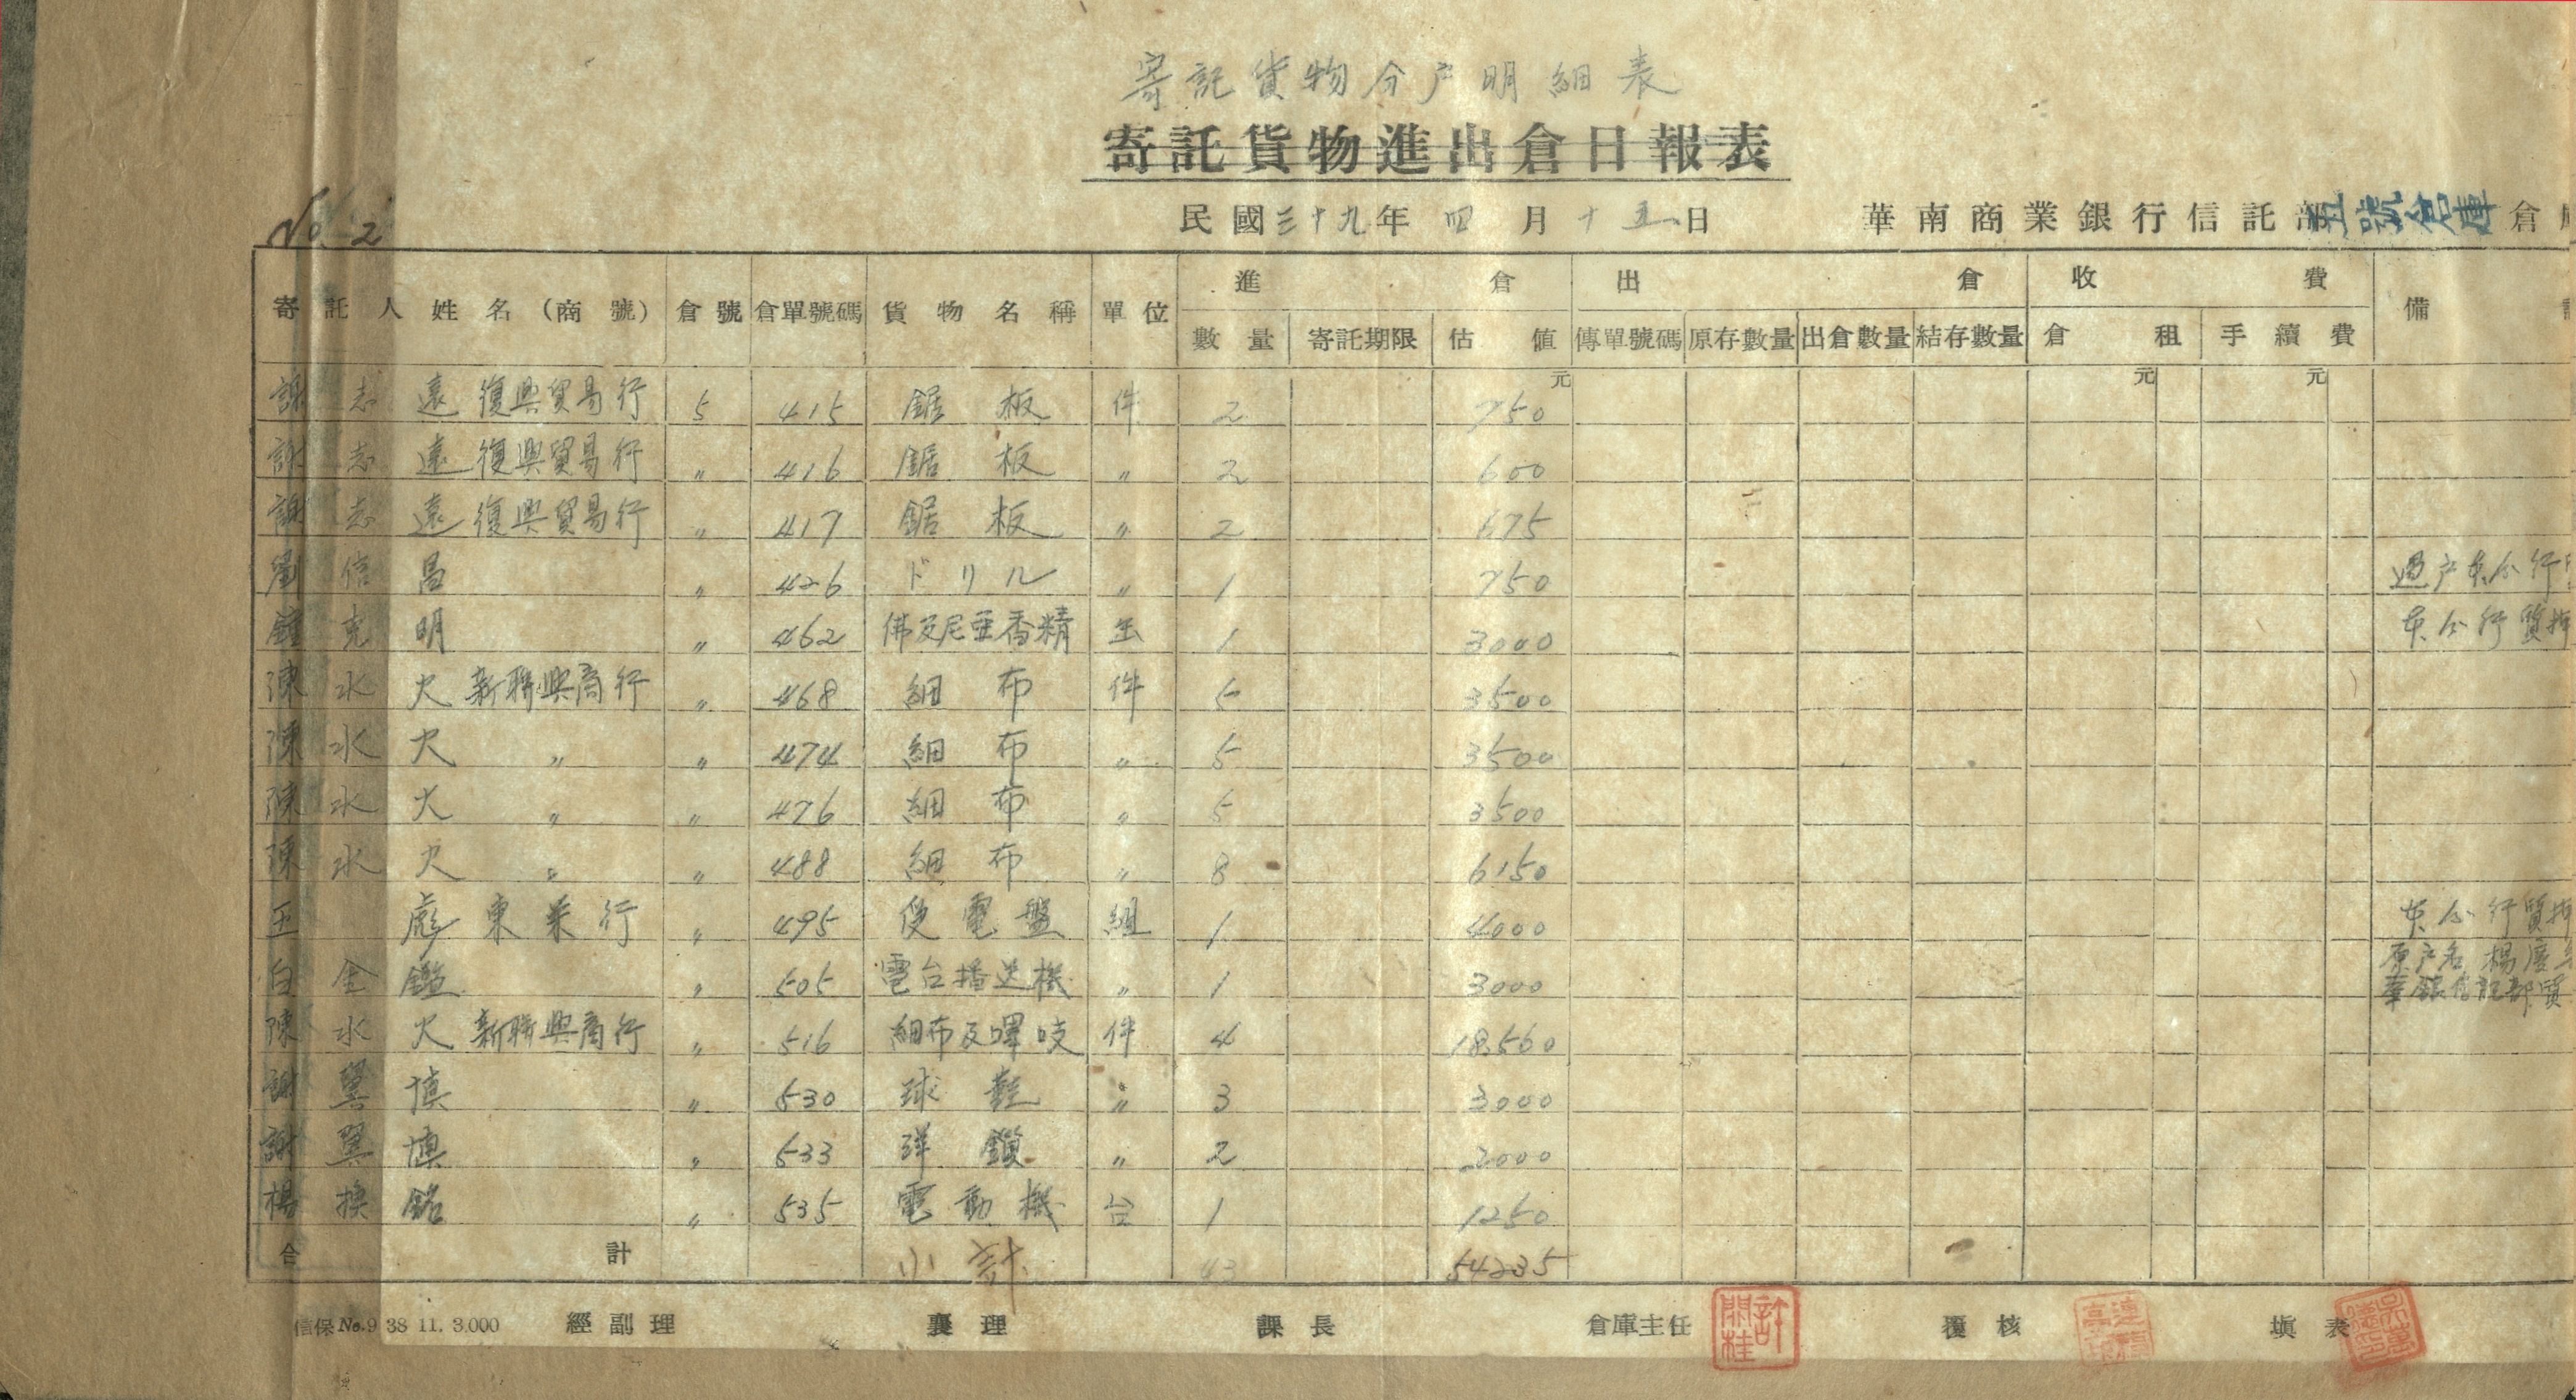 寄託貨物分戶明細表
寄託貨物進出倉日報表
No. 2
民國三十九年 四月十五日 華南商業銀行信託部 五號倉庫 倉
進倉 出倉 收費
寄託人姓名(商號) 倉號 倉單號碼 貨物名稱 單位 數量 寄託期限 估值 傳單號碼 原存數量 出倉數量 結存數量 倉租 手續費 備
元 元 元
謝志遠 復興貿易行 5 415 鋸板 件 2 750
謝志遠 復興貿易行 〃 416 鋸板 〃 2 600
謝志遠 復興貿易行 〃 417 鋸板 〃 2 675
劉信昌 〃 426 ドリル 〃 1 750 過戶
鍾克明 〃 462 佛及尼亜香精 缶 1 3000 行質押
陳水火 新聯興商行 〃 468 細布 件 5 3500
陳水火 〃 〃 474 細布 〃 5 3500
陳水火 〃 〃 476 細布 〃 5 3500
陳水火 〃 〃 488 細布 〃 8 6150
王彪 東業行 〃 495 受電盤 組 1 4000 行質押
白金鑑 〃 505 電台播送機 〃 1 3000 原戶名 楊慶
華銀信託部質
陳水火 新聯興商行 〃 516 細布及嗶吱 件 4 18,560
謝翼慎 〃 530 球鞋 〃 3 3000
謝翼慎 〃 533 洋鎖 〃 2 2000
楊換銘 〃 535 電動機 台 1 1250
合計 小計 43 54235
信保No.9 38 11. 3.000 經副理 襄理 課長 倉庫主任 許開桂 覆核 填表